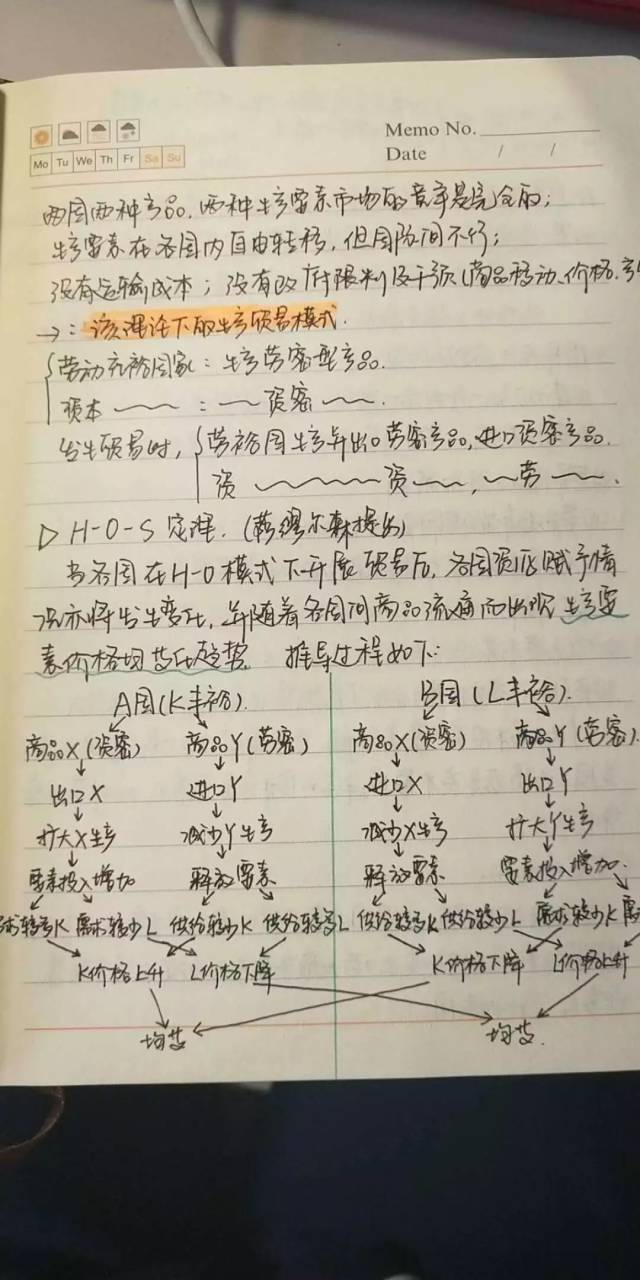 Memo No.
Mo Tu We Th Fr Sa Su
Date / /
两国两种产品，两种生产要素市场的竞争是完全的；
生产要素在各国内自由转移，但国际间不行；
没有运输成本；没有政府限制及干预(商品移动、价格、
→：该理论下的生产贸易模式.
劳动充裕国家：生产劳密型产品.
资本 〜〜 ：〜资密〜〜.
发生贸易时，劳裕国生产并出口劳密产品，进口资密产品.
资 〜〜〜 资〜〜，〜劳〜〜.
▷ H-O-S 定理. (萨缪尔森提出)
当各国在H-O模式下开展贸易后，各国资源赋予情
况亦将发生变化，并随着各国间商品流通而出现生产要
素价格均等化趋势. 推导过程如下：
A国(K丰裕). B国(L丰裕).
商品X(资密) 商品Y(劳密) 商品X(资密) 商品Y(劳密).
出口X 进口Y 进口X 出口Y
扩大X生产 减少Y生产 减少X生产 扩大Y生产
要素投入增加 释放要素 释放要素 要素投入增加.
求较多K 需求较少L 供给较少K 供给较多L 供给较多K 供给较少L 需求较少K 需
K价格上升 L价格下降 K价格下降 L价格上升
均等 均等.